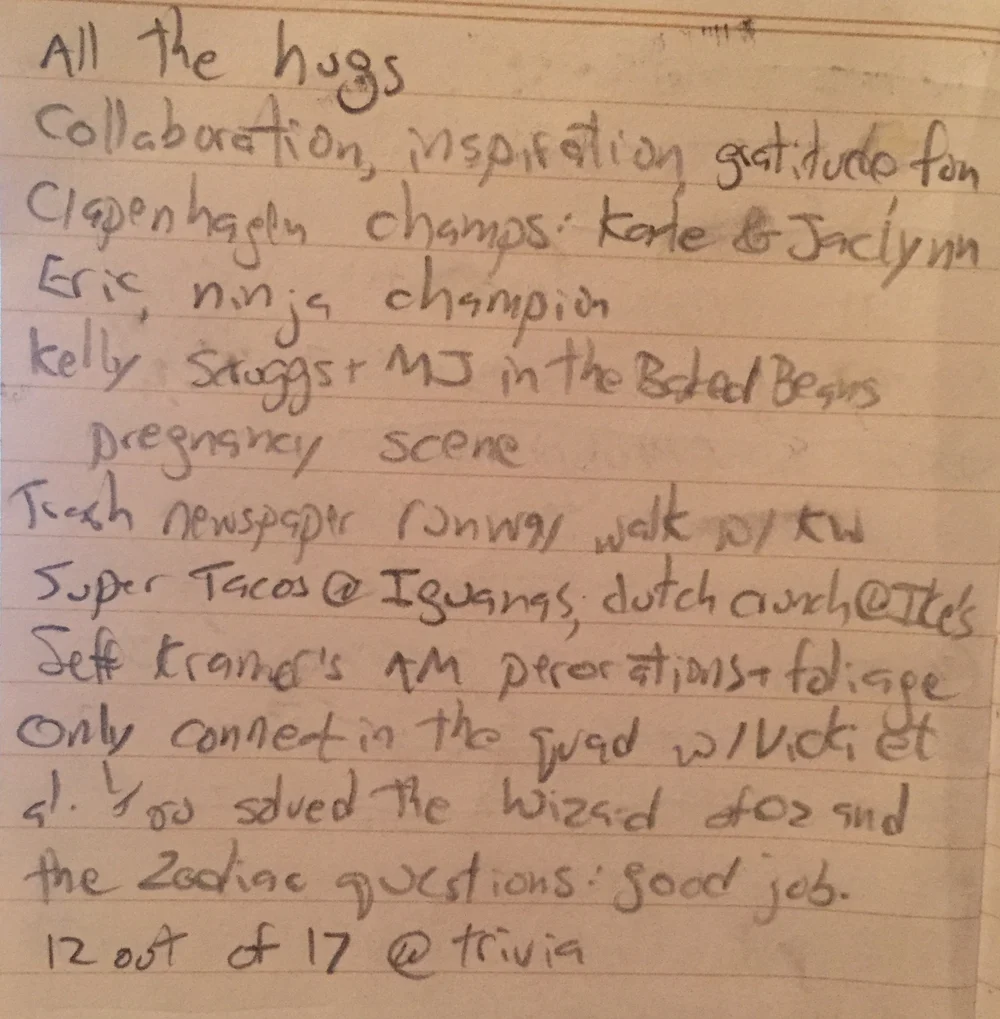 All the hugs
Collaboration, inspiration, gratitude, fun
Clapenhagen champs: Karle & Jaclynn
Eric, ninja champion
Kelly Scruggs + MJ in the Baked Beans
pregnancy scene
Trash newspaper runway walk w/ KW
Super Tacos @ Iguanas, dutch crunch @ Ike's
Jeff Kramer's AM perorations + foliage
Only connect in the quad w/ Vicki et
al. You solved the Wizard of Oz and
the Zodiac questions: good job.
12 out of 17 @ trivia